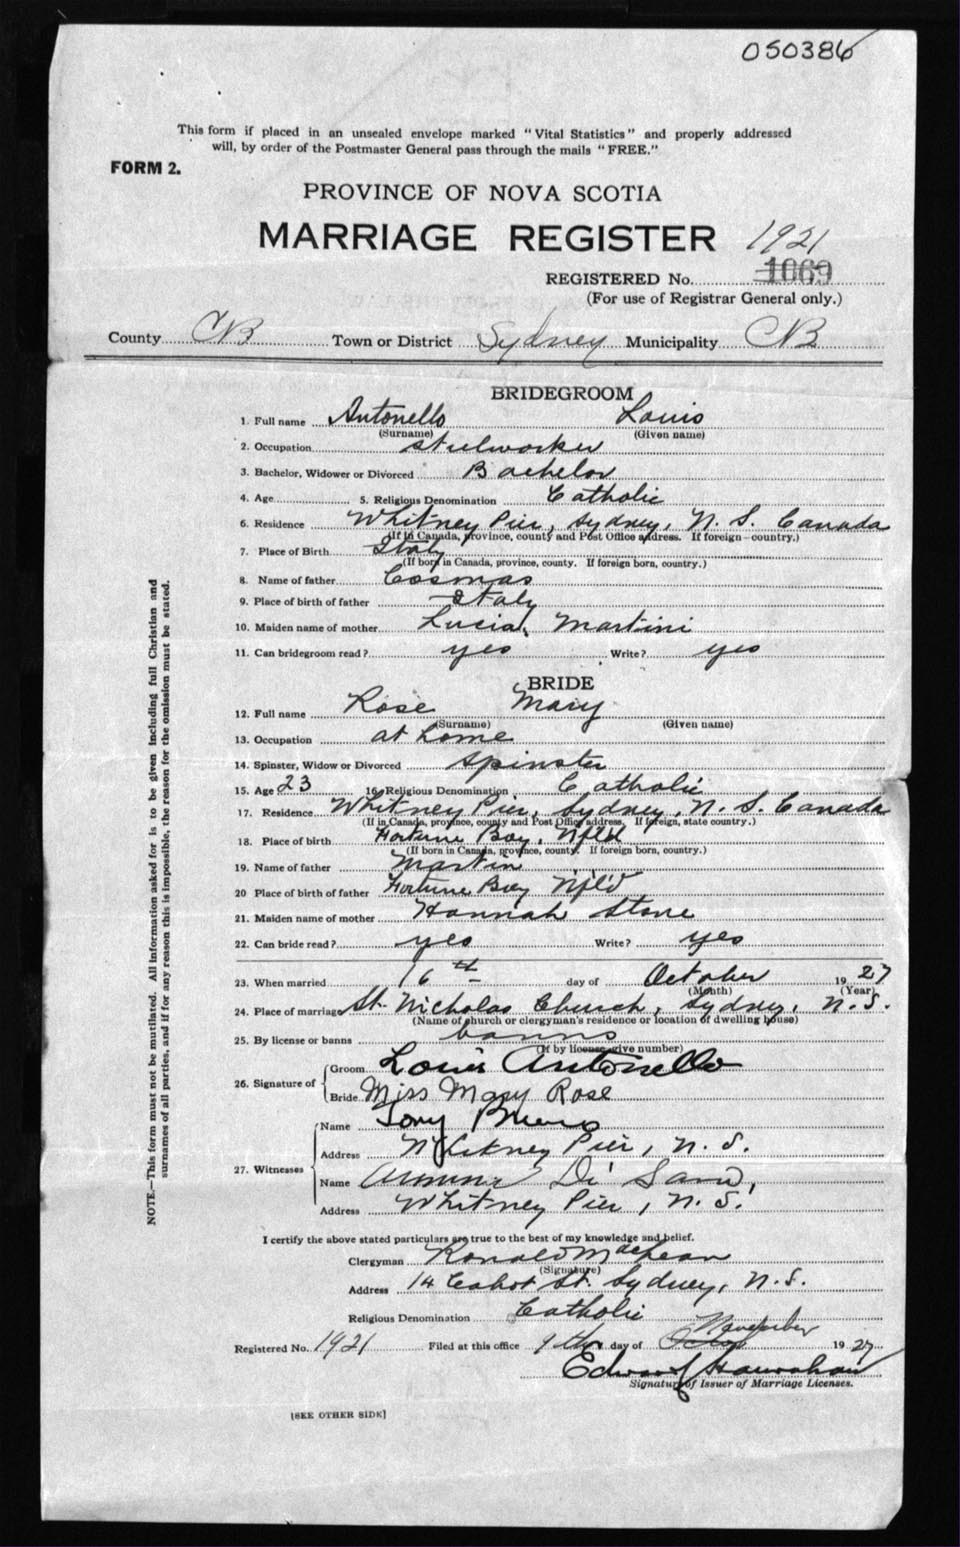 050386
This form if placed in an unsealed envelope marked "Vital Statistics" and properly addressed
will, by order of the Postmaster General pass through the mails "FREE."
FORM 2.
PROVINCE OF NOVA SCOTIA
MARRIAGE REGISTER 1921
REGISTERED No. 1069
(For use of Registrar General only.)
County CB Town or District Sydney Municipality CB
BRIDEGROOM
1. Full name Antonello Louis
(Surname) (Given name)
2. Occupation steelworker
3. Bachelor, Widower or Divorced Bachelor
4. Age 5. Religious Denomination Catholic
6. Residence Whitney Pier, Sydney, N. S. Canada
(If in Canada, province, county and Post Office address. If foreign - country.)
7. Place of Birth Italy
(If born in Canada, province, county. If foreign born, country.)
8. Name of father Cosmas
9. Place of birth of father Italy
10. Maiden name of mother Lucia Martini
11. Can bridegroom read? yes Write? yes
BRIDE
12. Full name Rose Mary
(Surname) (Given name)
13. Occupation at home
14. Spinster, Widow or Divorced Spinster
15. Age 23 16. Religious Denomination Catholic
17. Residence Whitney Pier, Sydney, N. S. Canada
(If in Canada, province, county and Post Office address. If foreign, state country.)
18. Place of birth Fortune Bay, Nfld
(If born in Canada, province, county. If foreign born, country.)
19. Name of father Martin
20 Place of birth of father Fortune Bay Nfld
21. Maiden name of mother Hannah Stone
22. Can bride read? yes Write? yes
23. When married 16th day of October 1927
(Month) (Year)
24. Place of marriage St. Nicholas Church, Sydney, N. S.
(Name of church or clergyman's residence or location of dwelling house)
25. By license or banns banns
(If by license give number)
26. Signature of Groom Louis Antonello
Bride Miss Mary Rose
27. Witnesses Name Tony
Address Whitney Pier, N. S.
Name Di
Address Whitney Pier, N. S.
I certify the above stated particulars are true to the best of my knowledge and belief.
Clergyman Ronald MacLean
(Signature)
Address 14 Cabot St. Sydney, N. S.
Religious Denomination Catholic
Registered No. 1921 Filed at this office 9th day of November 1927
Edward Hanrahan
Signature of Issuer of Marriage Licenses.
[SEE OTHER SIDE]
NOTE.—This form must not be mutilated. All information asked for is to be given including full Christian and
surnames of all parties, and if for any reason this is impossible, the reason for the omission must be stated.